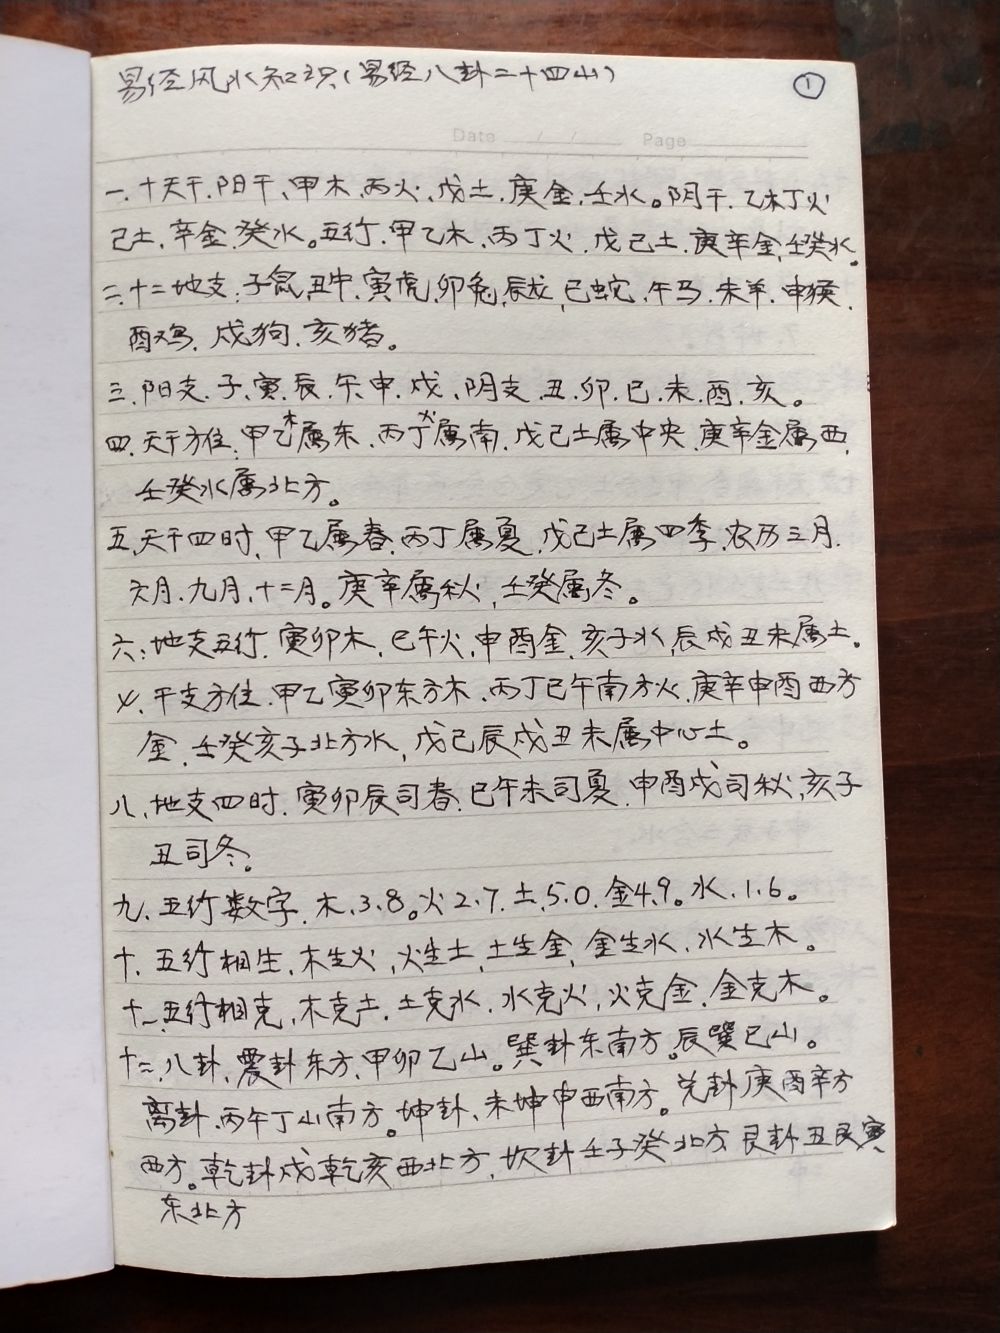 易经风水知识(易经八卦二十四山)
①
Date / / Page
一、十天干、阳干、甲木、丙火、戊土、庚金、壬水。阴干、乙木丁火
己土、辛金、癸水。五行、甲乙木、丙丁火、戊己土、庚辛金、壬癸水。
二、十二地支:子鼠、丑牛、寅虎、卯兔、辰龙、巳蛇、午马、未羊、申猴、
酉鸡、戌狗、亥猪。
三、阳支、子、寅、辰、午、申、戌、阴支、丑、卯、巳、未、酉、亥。
四、天干方位、甲乙木属东、丙丁火属南、戊己土属中央、庚辛金属西、
壬癸水属北方。
五、天干四时、甲乙属春、丙丁属夏、戊己土属四季、农历三月、
六月、九月、十二月。庚辛属秋、壬癸属冬。
六:地支五行、寅卯木、巳午火、申酉金、亥子水、辰戌丑未属土。
七、干支方位、甲乙寅卯东方木、丙丁巳午南方火、庚辛申酉西方
金、壬癸亥子北方水、戊己辰戌丑未属中心土。
八、地支四时、寅卯辰司春、巳午未司夏、申酉戌司秋、亥子
丑司冬。
九、五行数字、木、3、8。火2、7、土、5、0、金4、9。水、1、6。
十、五行相生、木生火、火生土、土生金、金生水、水生木。
十一、五行相克、木克土、土克水、水克火、火克金、金克木。
十二、八卦、震卦东方、甲卯乙山。巽卦东南方。辰巽巳山。
离卦、丙午丁山南方。坤卦、未坤申西南方。兑卦庚酉辛方
西方。乾卦戌乾亥西北方、坎卦壬子癸北方、艮卦丑艮寅
东北方